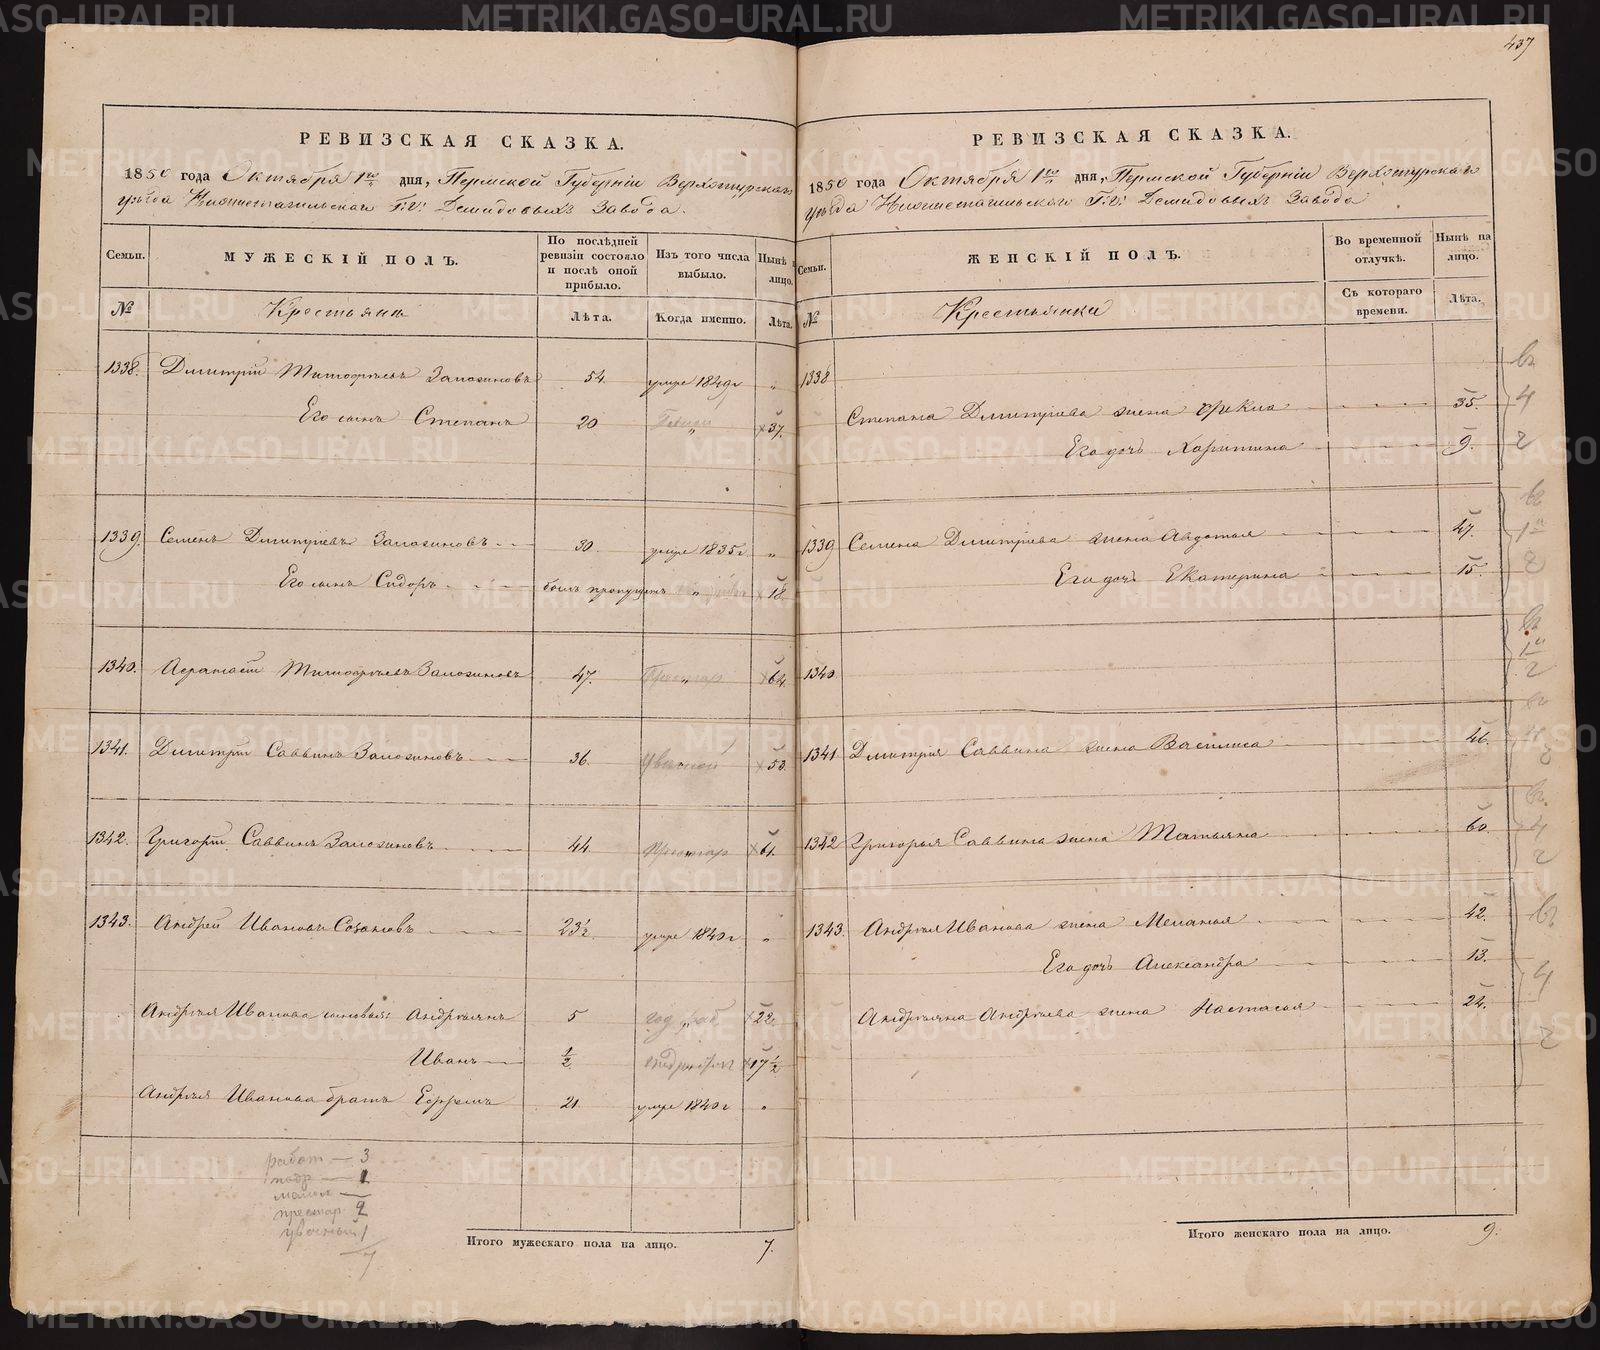 437
РЕВИЗСКАЯ СКАЗКА.
1850 года Октября 1го дня, Пермской Губерніи Верхотурскаго
уѣзда Нижнетагильскаго Г.г. Демидовыхъ Завода.
Семьи. МУЖЕСКІЙ ПОЛЪ. По послѣдней ревизіи состояло и послѣ оной прибыло. Изъ того числа выбыло. Нынѣ на лицо.
№ Крестьянъ Лѣта. Когда именно. Лѣта.
1338. Дмитрій Тимофѣевъ 54. умре 1849 г "
Его сынъ Степанъ 20 " 37.
1339. Семенъ Дмитріевъ 30. умре 1835 г. "
Его сынъ Сидоръ былъ пропущенъ " 18
1340. Афанасій Тимофѣевъ 47. престар 64.
1341. Дмитрій Саввинъ 36. увѣчной 53
1342. Григорій Саввинъ 44. престар 61.
1343. Андрей Ивановъ 23½. умре 1840 г "
Андрѣя Иванова сыновья: Андрѣянъ 5 22
Иванъ ½ 17½
Андрѣя Иванова братъ Ефремъ 21 умре 1840 г "
работ — 3
подр — 1
малол —
престар 2
увѣчный 1
7
Итого мужескаго пола на лицо. 7.
РЕВИЗСКАЯ СКАЗКА.
1850 года Октября 1го дня, Пермской Губерніи Верхотурскаго
уѣзда Нижнетагильскаго Г.г. Демидовыхъ Завода
Семьи. ЖЕНСКІЙ ПОЛЪ. Во временной отлучкѣ. Нынѣ на лицо.
№ Крестьянки Съ котораго времени. Лѣта.
1338
Степана Дмитріева жена Фекла 35.
Его дочь Харитина 9.
1339 Семена Дмитріева жена Авдотья 47.
Его дочь Екатерина 15.
1340
1341 Дмитрія Саввина жена Василиса 46.
1342 Григорья Саввина жена Татьяна 60.
1343. Андрѣя Иванова жена Меланья 42.
Его дочь Александра 13.
Андрѣяна Андрѣева жена Настасья 24.
Итого женскаго пола на лицо. 9.
METRIKI.GASO-URAL.RU